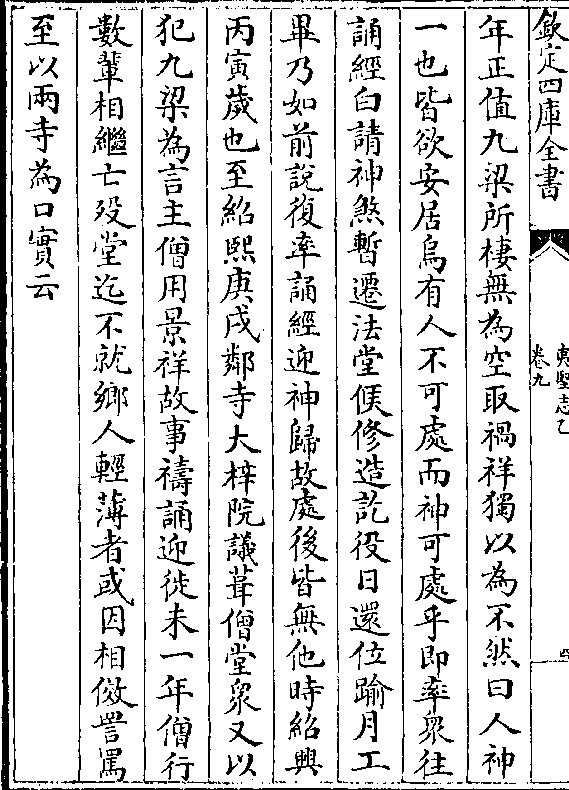 欽定四庫全書
夷堅志乙
卷九
年正值九梁所棲無為空取禍祥獨以為不然曰人神
一也皆欲安居烏有人不可處而神可處乎即率衆往
誦經白請神煞暫遷法堂候修造訖役日還位踰月工
畢乃如前說復率誦經迎神歸故處後皆無他時紹興
丙寅歲也至紹熙庚戌鄰寺大梓院議葺僧堂衆又以
犯九梁為言主僧用景祥故事禱誦迎徙未一年僧行
數輩相繼亡殁堂迄不就鄉人輕薄者或因相儆詈罵
至以兩寺為口實云